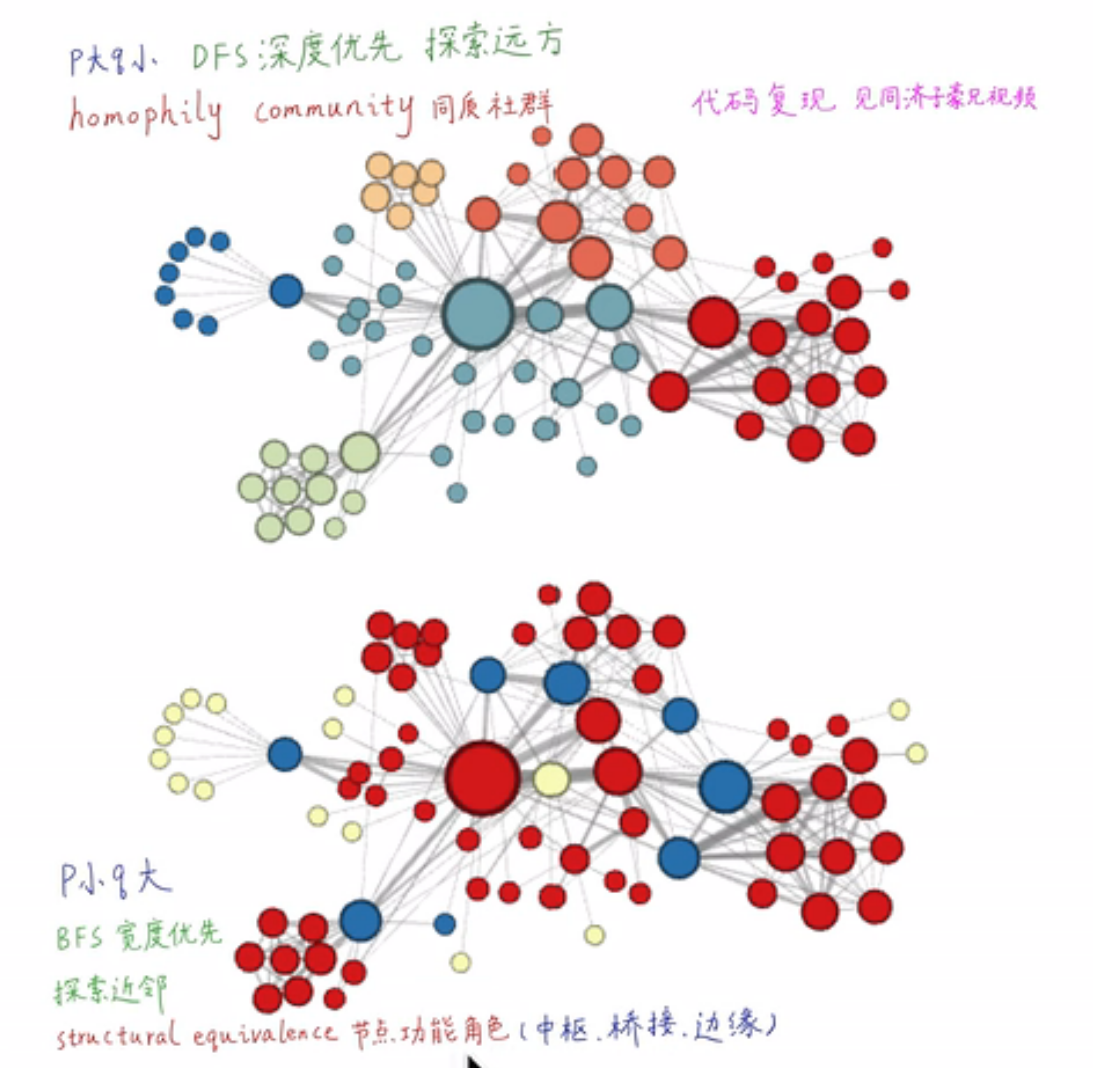 P大q小 DFS:深度优先 探索远方
homophily community 同质社群
代码复现 见同济子豪兄视频
P小q大
BFS 宽度优先
探索近邻
structural equivalence 节点功能角色(中枢.桥接.边缘)